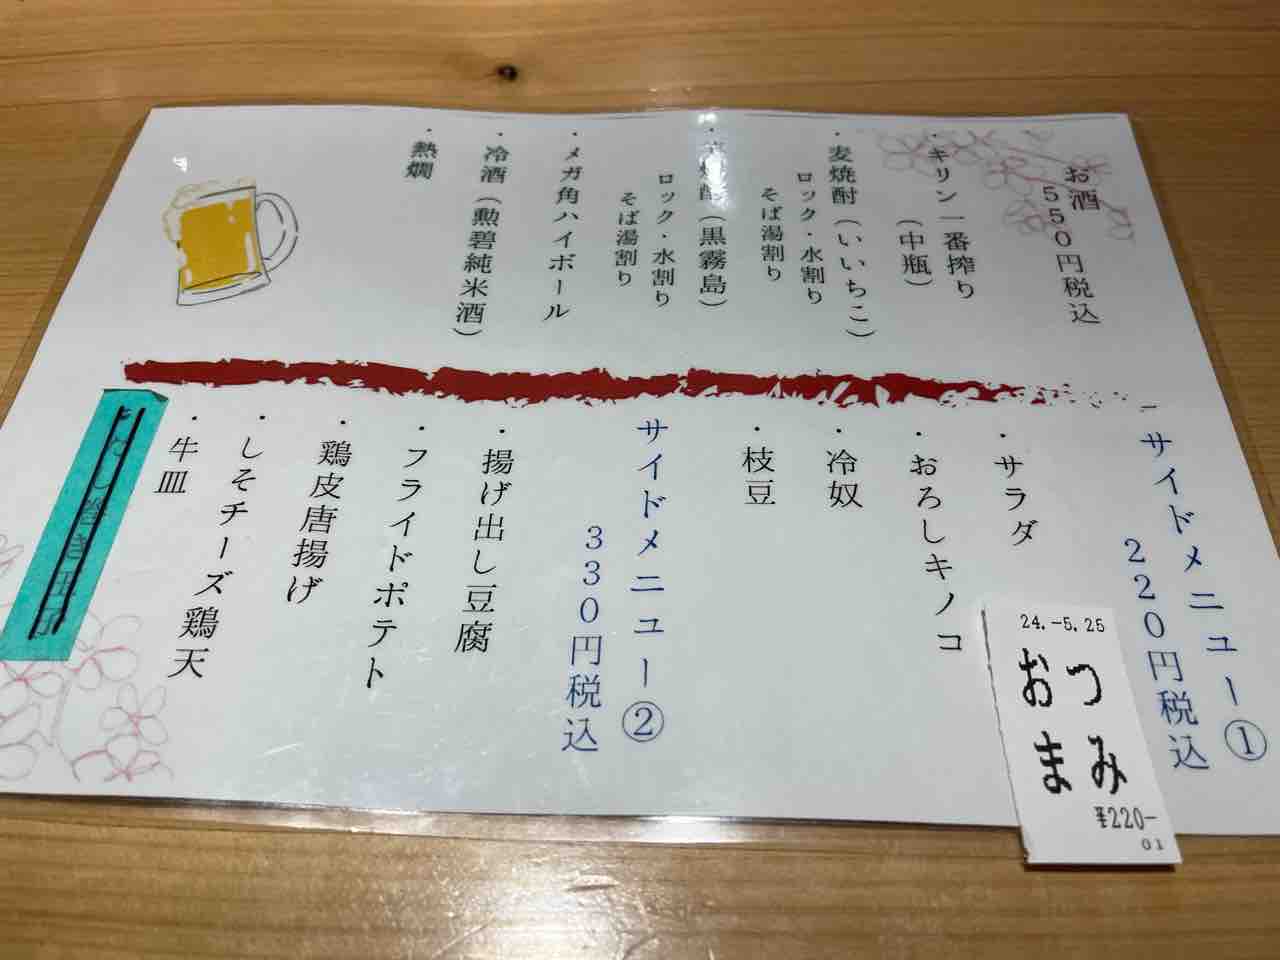 お酒
550円税込
・キリン一番搾り
（中瓶）
・麦焼酎（いいちこ）
ロック・水割り
そば湯割り
（黒霧島）
ロック・水割り
そば湯割り
・メガ角ハイボール
・冷酒（勲碧純米酒）
・熱燗
サイドメニュー①
220円税込
・サラダ
・おろしキノコ
・冷奴
・枝豆
サイドメニュー②
330円税込
・揚げ出し豆腐
・フライドポテト
・鶏皮唐揚げ
・しそチーズ鶏天
・牛皿
し巻き玉子
24.-5.25
おつ
まみ
¥220-
01